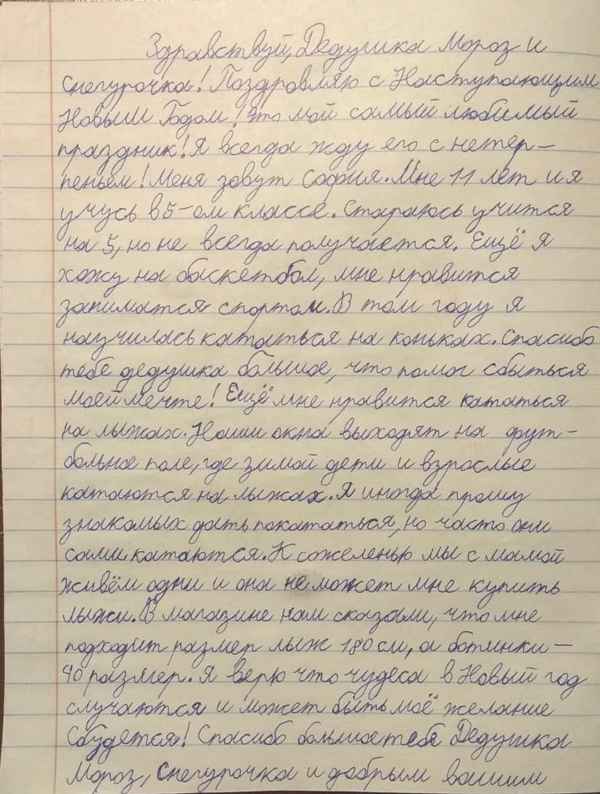 Здравствуй, Дедушка Мороз и
Снегурочка! Поздровляю с Наступающим
Новым Годом! Это мой самый любимый
праздник! Я всегда жду его с нетер-
пеньем! Меня зовут София. Мне 11 лет и я
учусь в 5-ом классе. Стараюсь учится
на 5, но не всегда получается. Ещё я
хожу на баскетбол, мне нравится
заниматся спортом. В том году я
научилась кататься на коньках. Спасибо
тебе дедушка большое, что помог сбыться
моей мечте! Ещё мне нравится кататься
на лыжах. Наши окна выходят на фут-
больное поле, где зимой дети и взрослые
катаются на лыжах. Я иногда прошу
знакомых дать покататься, но часто они
сами катаются. К соженью мы с мамой
живём одни и она не может мне купить
лыжи. В магазине нам сказали, что мне
подходит размер лыж 180 см, а ботинки –
40 размер. Я верю что чудеса в Новый год
случаются и может быть моё желание
Сбудется! Спасибо большое тебе Дедушка
Мороз, Снегурочка и добрым вашим